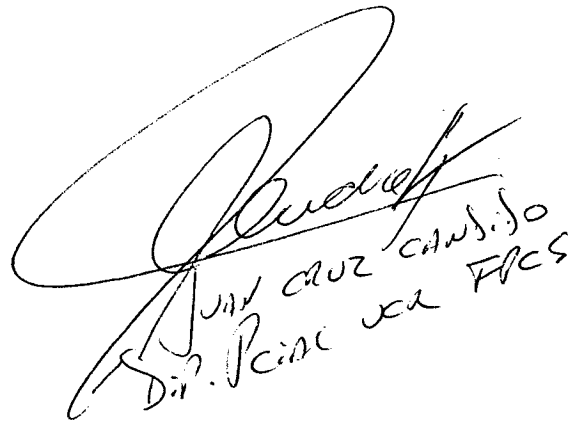 JUAN CRUZ CANDIDO
Dip. Pcial UCR FPCS